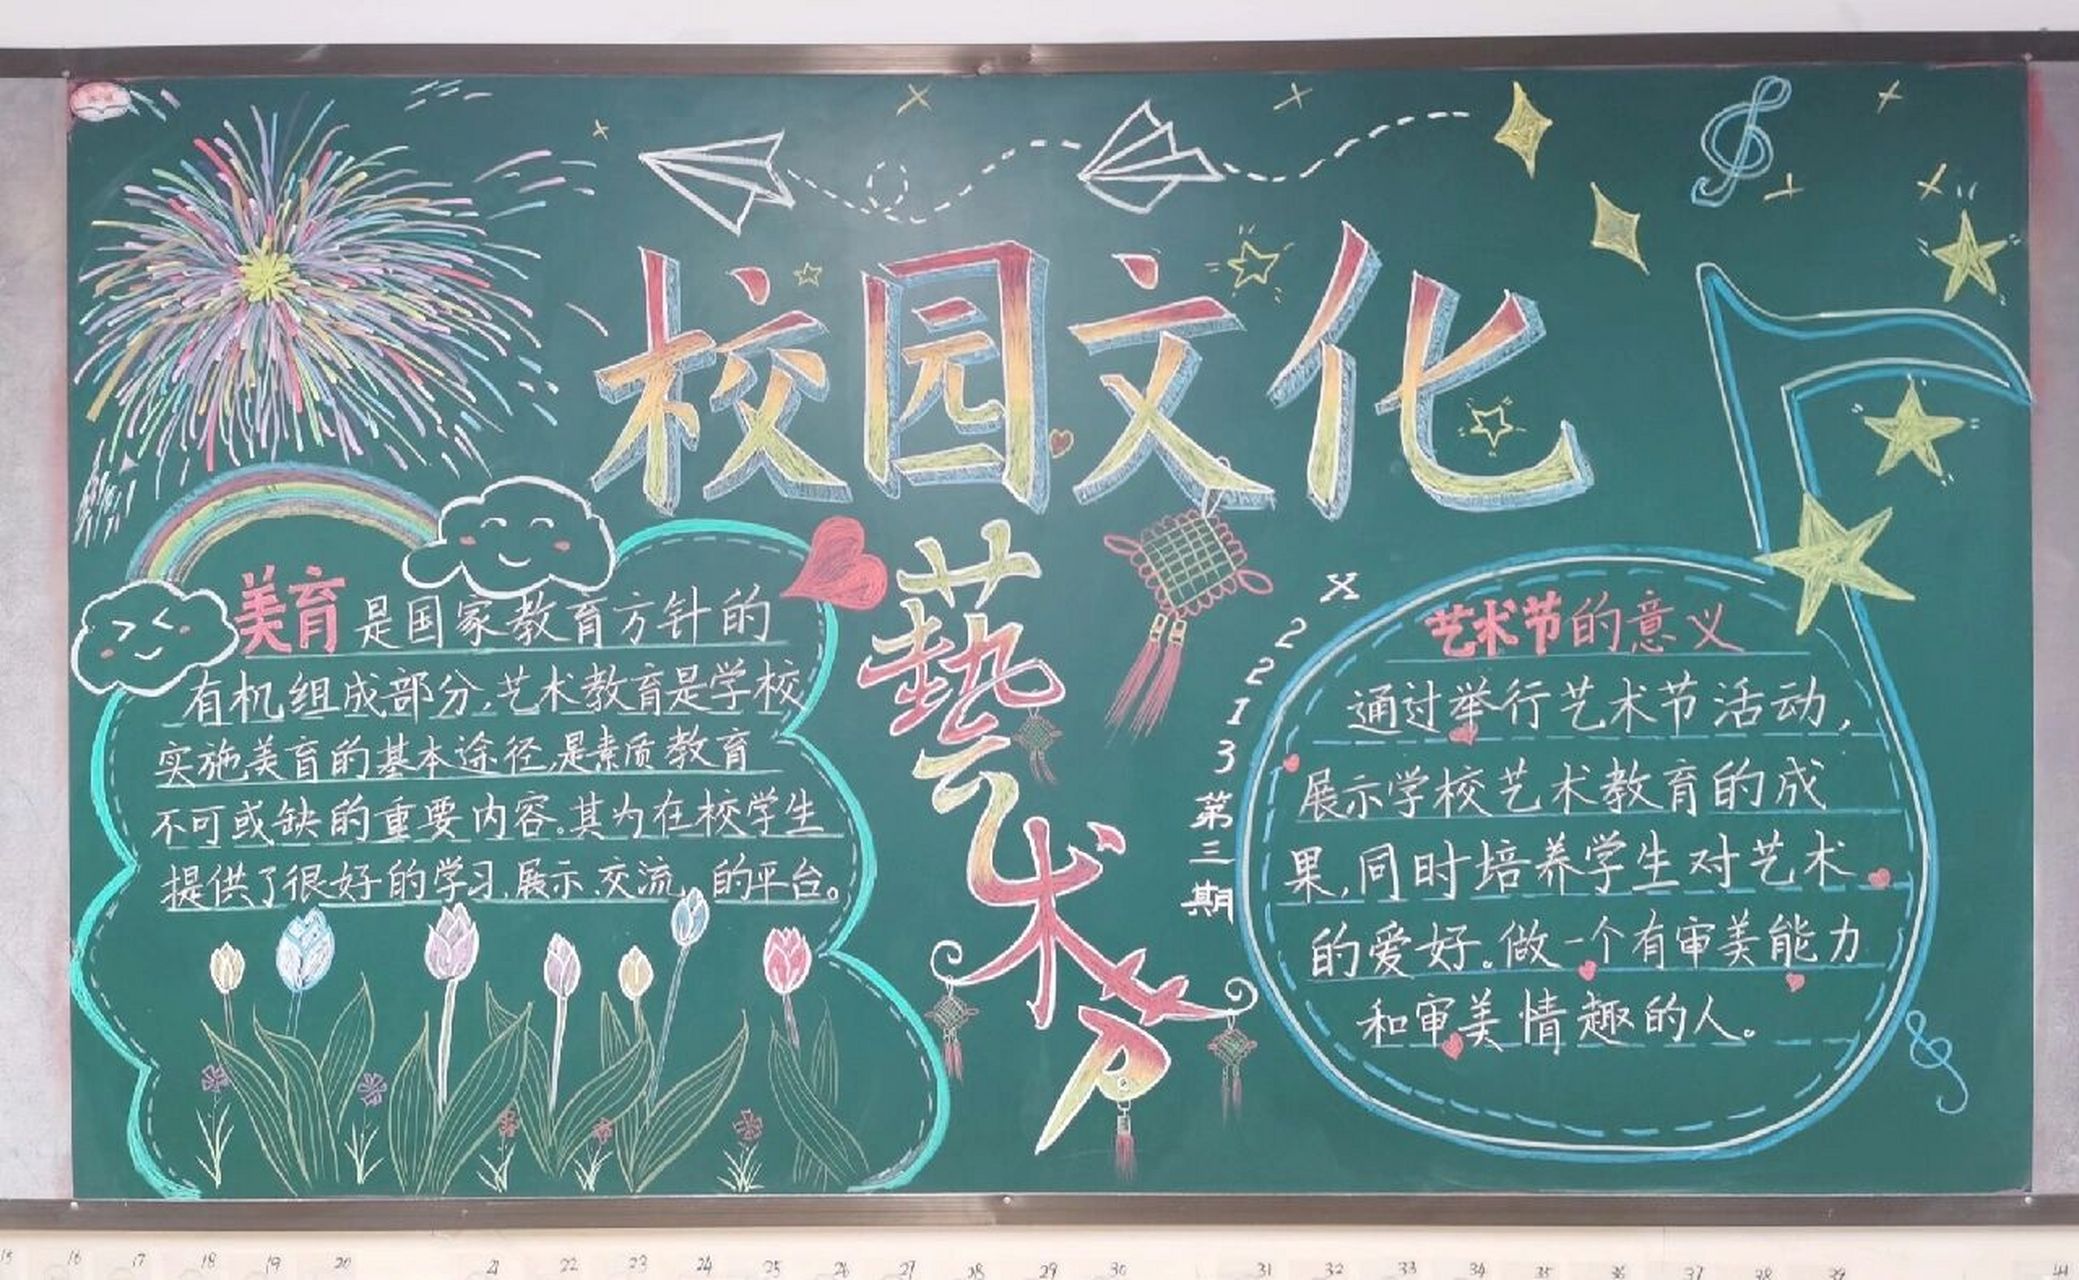 校园文化
藝术节
美育是国家教育方针的
有机组成部分,艺术教育是学校
实施美育的基本途径,是素质教育
不可或缺的重要内容。其为在校学生
提供了很好的学习、展示、交流、的平台。
X
2
2
1
3
第
三
期
艺术节的意义
通过举行艺术节活动,
展示学校艺术教育的成
果,同时培养学生对艺术
的爱好。做一个有审美能力
和审美情趣的人。
15 16 17 18 19 20 21 22 23 24 25 26 27 28 29 30 31 32 33 34 35 36 37 38 39 44